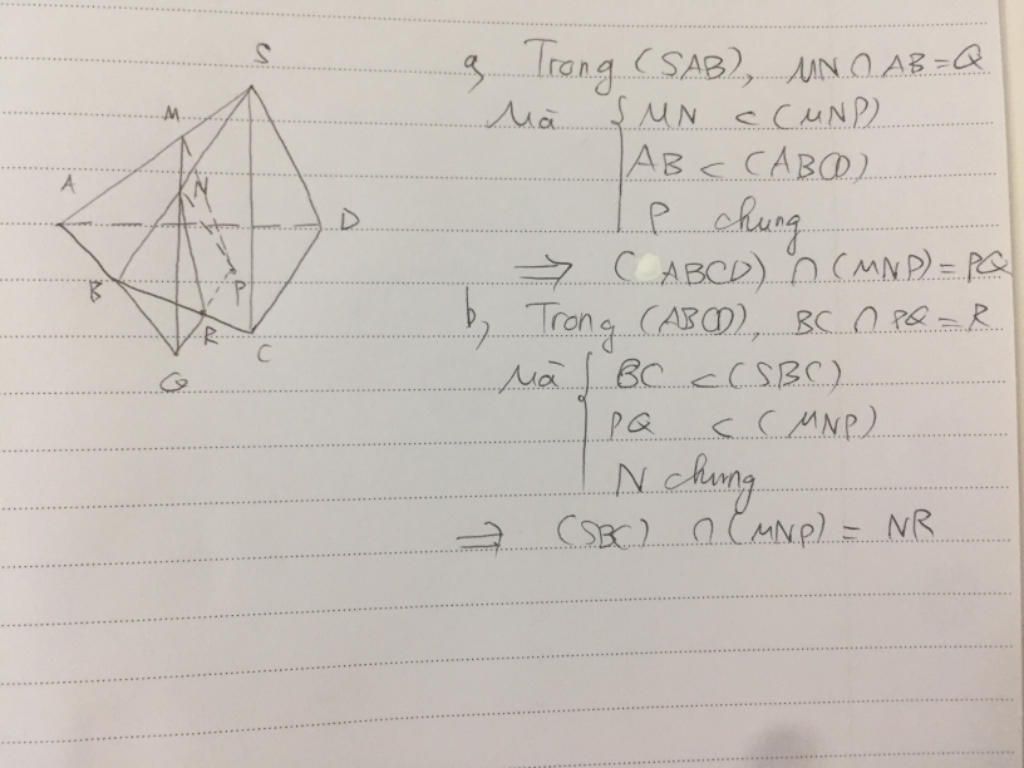 S
M
A
N
D
B
P
R
C
Q
a, Trong (SAB), MN ∩ AB = Q
Mà { MN ⊂ (MNP)
AB ⊂ (ABCD)
P chung
⇒ (ABCD) ∩ (MNP) = PQ
b, Trong (ABCD), BC ∩ PQ = R
Mà { BC ⊂ (SBC)
PQ ⊂ (MNP)
N chung
⇒ (SBC) ∩ (MNP) = NR